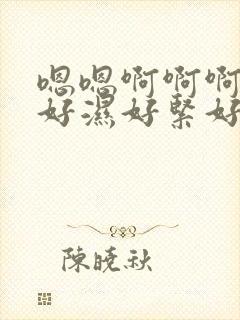 嗯嗯啊啊啊
好濕好緊好
陳曉秋